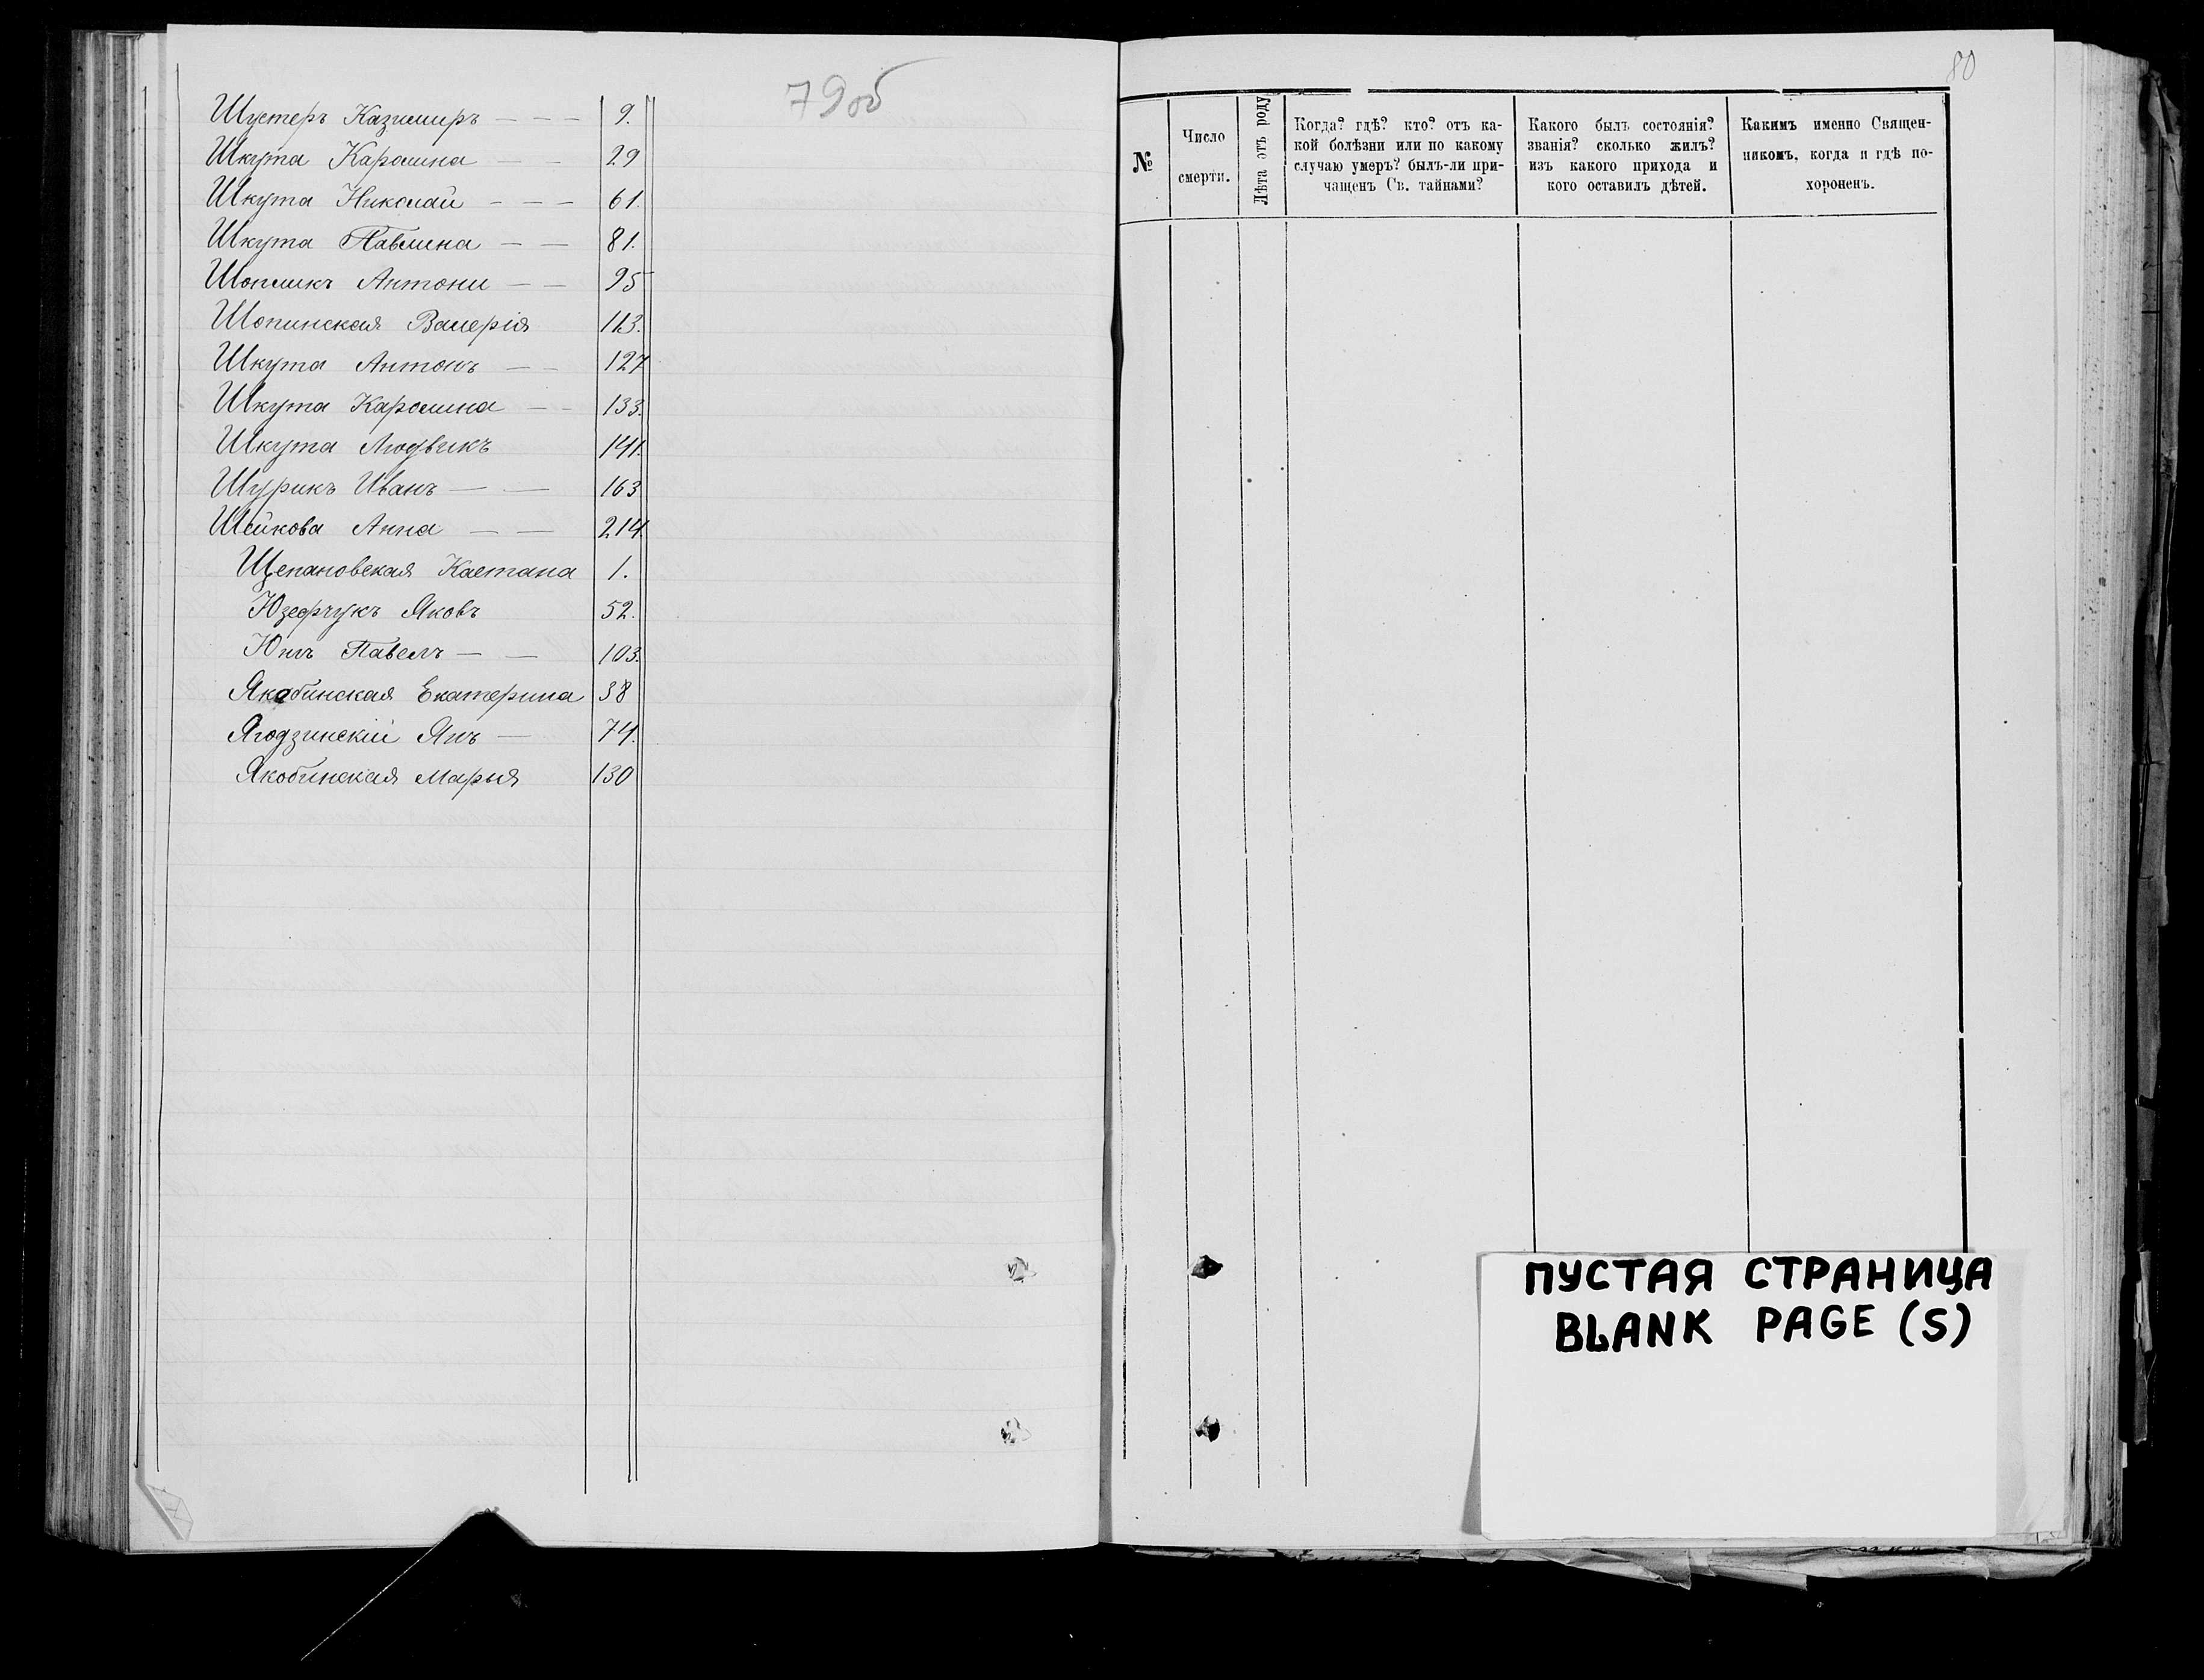 79об
Шустеръ Казимиръ — — — 9.
Шкута Каролина — — 29
Шкута Николай — — — 61.
Шкута Павлина — — 81.
Шопликъ Антони — — 95
Шопинская Валерія 113.
Шкута Антонъ — — 127
Шкута Каролина — — 133.
Шкута Людвикъ 141.
Шурикъ Иванъ — — 163
Шейкова Анна — — 214.
Щепановская Каетана 1.
Юзефчукъ Яковъ 52.
Юнгъ Павелъ — — 103.
Якобинская Екатерина 38
Ягодзинскій Янъ — 74.
Якобинская Марья 130
80
№
Число
смерти.
Лѣта отъ роду
Когда? гдѣ? кто? отъ ка-
кой болѣзни или по какому
случаю умеръ? былъ-ли при-
чащенъ Св. тайнами?
Какого былъ состоянія?
званія? сколько жилъ?
изъ какого прихода и
кого оставилъ дѣтей.
Какимъ именно Священ-
никомъ, когда и гдѣ по-
хороненъ.
ПУСТАЯ СТРАНИЦА
BLANK PAGE (S)